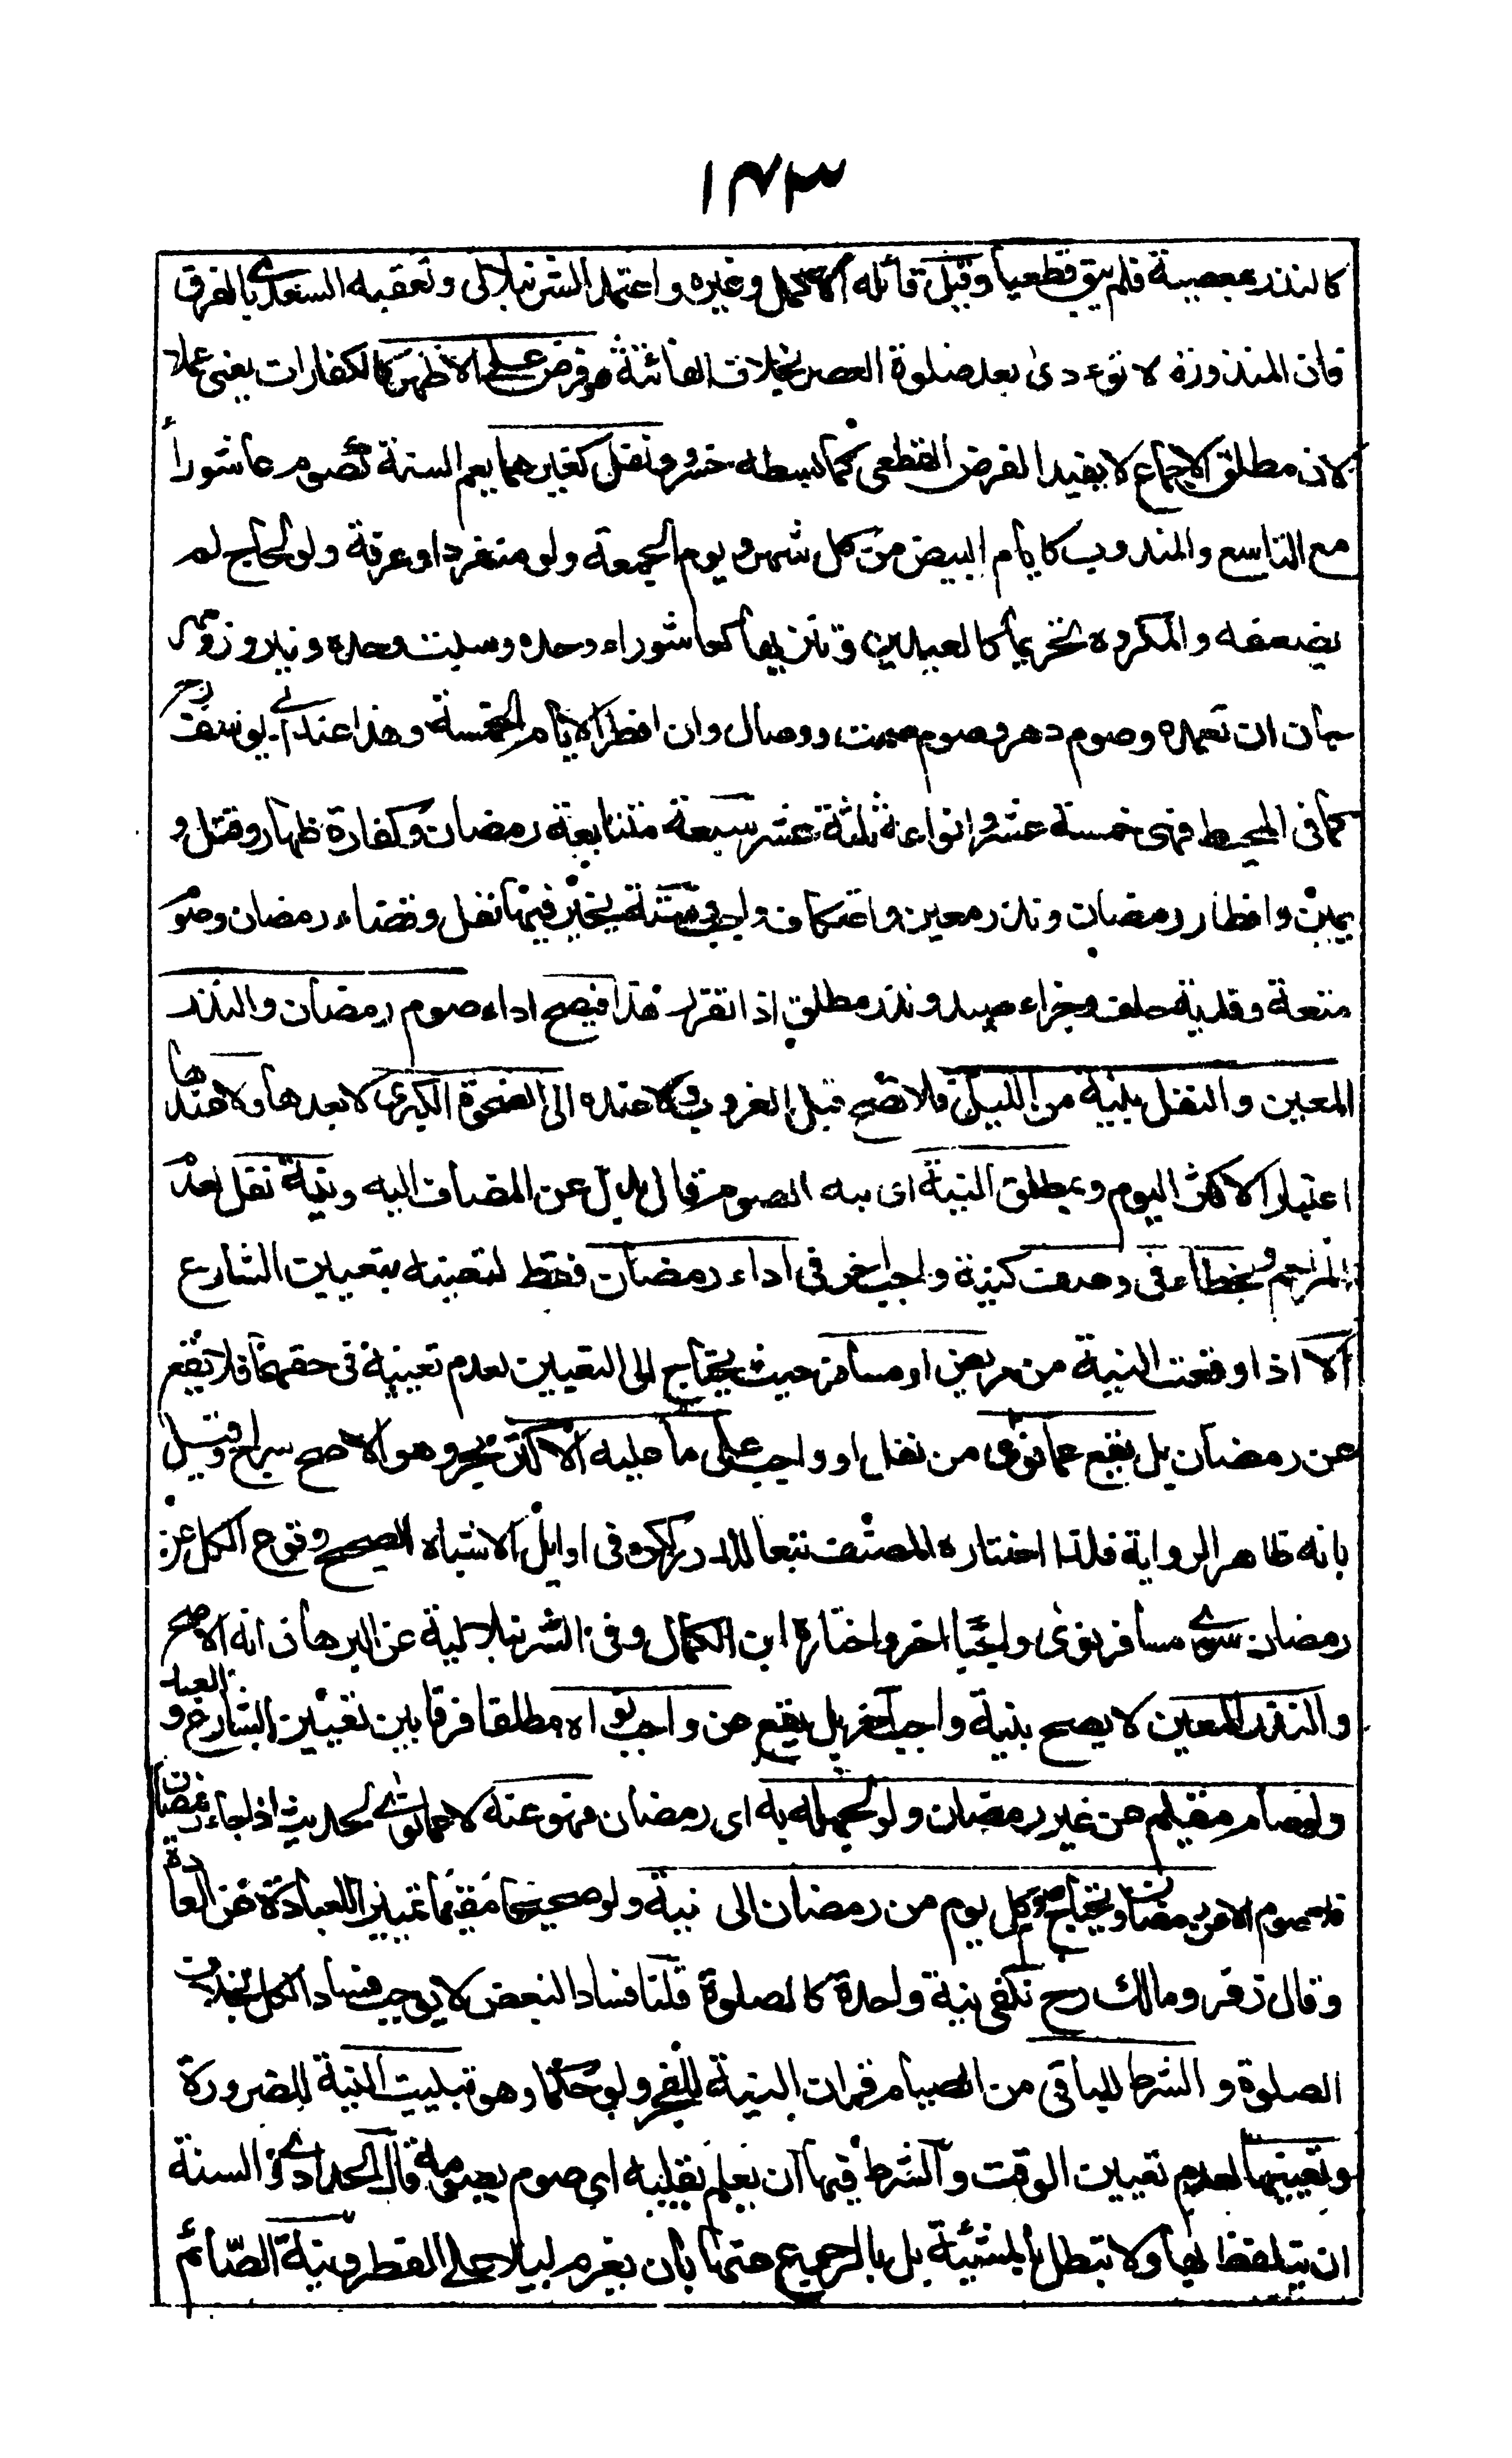 ١٧٣
كالنذر بمعصية فلم يبق قطعيا وقيل قائله الاكمل وغيره واعتمد الشرنبلالى وتعقبه السعدى بالفرق
فان المنذورة لا تؤدى بعد صلوة العصر بخلاف الفائتة هو فرض على الاظهر كالكفارات يعنى عملا
لان مطلق الاجماع لا يفيد الفرض القطعى كما بسطه خسرو ونفل كغيرهما يعم السنة كصوم عاشورأ
مع التاسع والمندوب كايام البيض من كل شهر ويوم الجمعة ولو منفردا وعرفة ولو لحاج لم
يضعفه والمكروه تحريما كالعيدين وتنزيها كعاشوراء وحده وسبت وحده ونيروز ومهر
جان ان تعمده وصوم دهر وصوم صمت ووصال وان افطر الايام الخمسة وهذا عند ابى يوسف رح
كما فى المحيط فهى خمسة عشر وانواعه ثلثة عشر سبعة متتابعة رمضان وكفارة ظهار وقتل و
يمين وافطار رمضان ونذر معين واعتكاف واجب وستة يخير فيها نفل وقضاء رمضان وصوم
متعة وفدية حلف وجزاء صيد ونذر مطلق اذا تقرر هذا فيصح اداء صوم رمضان والنذر
المعين والنفل بنية من الليل فلا تصح قبل الغروب ولا عنده الى الضحوة الكبرى لا بعدها ولا عندها
اعتبارا لاكثر اليوم وبمطلق النية اى نية الصوم فال بدل عن المضاف اليه وبنية نفل لعدم
المزاحم وبخطاء فى وصف كنية واجب اخر فى اداء رمضان فقط لتعينه بتعيين الشارع
الا اذا وقعت النية من مريض او مسافر حيث يحتاج الى التعيين لعدم تعينه فى حقهما فلا يقع
عن رمضان بل يقع عما نوى من نفل او واجب على ما عليه الاكثر بحر وهو الاصح سراج وقيل
بانه ظاهر الرواية فلذا اختاره المصنف تبعا للدرر لكن فى اوايل الاشباه الصحيح وقوع الكل عن
رمضان سوى مسافر نوى واجبا اخر واختاره ابن الكمال وفى الشرنبلالية عن البرهان انه الاصح
والنذر المعين لا يصح بنية واجب اخر بل يقع عن واجب نواه مطلقا فرقا بين تعيين الشارع والعبد
ولو صام مقيم عن غير رمضان ولو لجهله به اى رمضان فهو عنه لا عما نوى لحديث اذا جاء رمضان
فلا صوم الا عن رمضان ويحتاج صوم كل يوم من رمضان الى نية ولو صحيحا مقيما تمييزا للعبادة عن العادة
وقال زفر ومالك رح تكفى نية واحدة كالصلوة قلنا فساد البعض لا يوجب فساد الكل بخلاف
الصلوة والشرط للباقى من الصيام قران النية للفجر ولو حكما وهو تبييت النية للضرورة
وتعيينها لعدم تعيين الوقت والشرط فيها ان يعلم بقلبه اى صوم يصومه قال الحدادى والسنة
ان يتلفظ بها ولا تبطل بالمشيئة بل بالرجوع عنها بان يعزم ليلا على الفطر ونية الصّائم